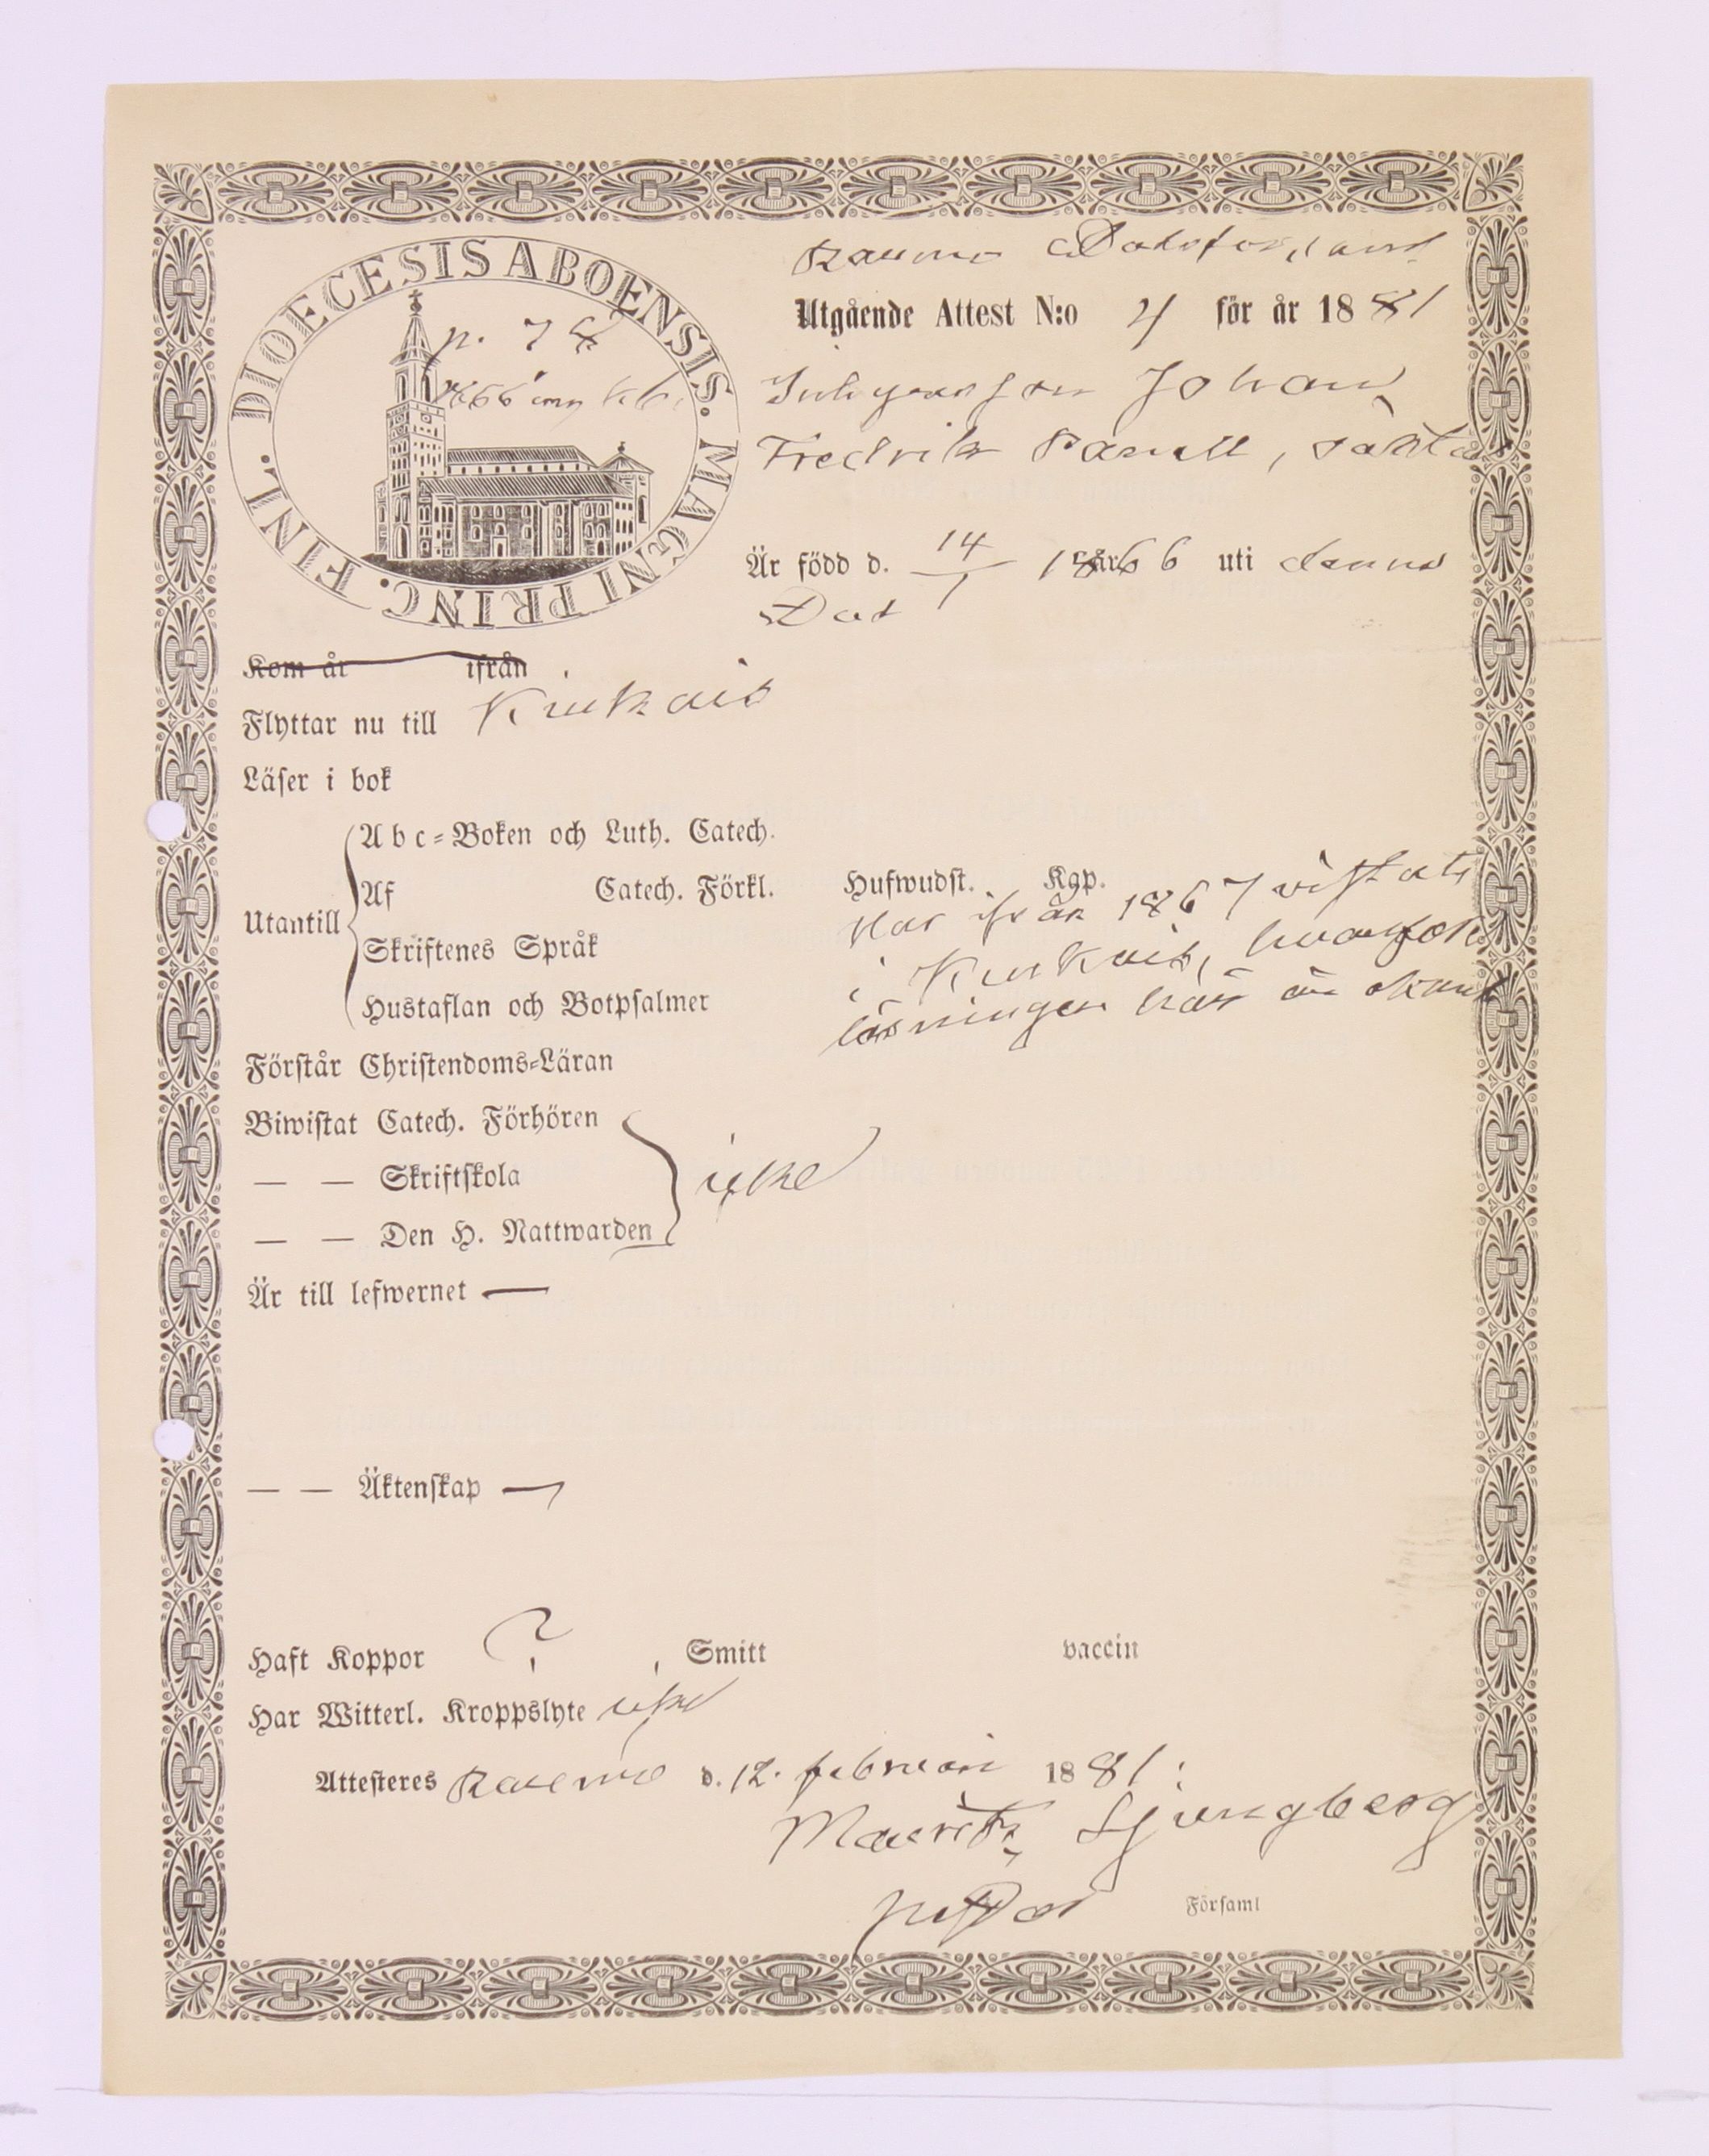 DIOECESIS ABOENSIS. MAGNI PRINC. FINL.
p. 78
Raumo Stadsförsaml
Utgående Attest N:o 4 för år 1881
Johan
Fredrik
Är född d. 14/1 1866 uti denna
Stad
Kom år ifrån
Flyttar nu till Kiukais
Läser i bok
Abc-Boken och Luth. Catech.
Af Catech. Förkl. Hufwudst. Kgp.
Utantill
Skriftenes Språk
Hustaflan och Botpsalmer
Har ifrån 1867 vistats
i Kiukais, hvarför
läsningen här är okänd
Förstår Christendoms-Läran
Biwistat Catech. Förhören
— — Skriftskola
— — Den H. Nattwarden
icke
Är till lefwernet —
— — Äktenskap —
Haft Koppor ?, Smitt vaccin
Har Witterl. Kroppslyte icke
Attesteres Raumo d. 12. februari 1881:
Mauritz Ljungberg
Församl